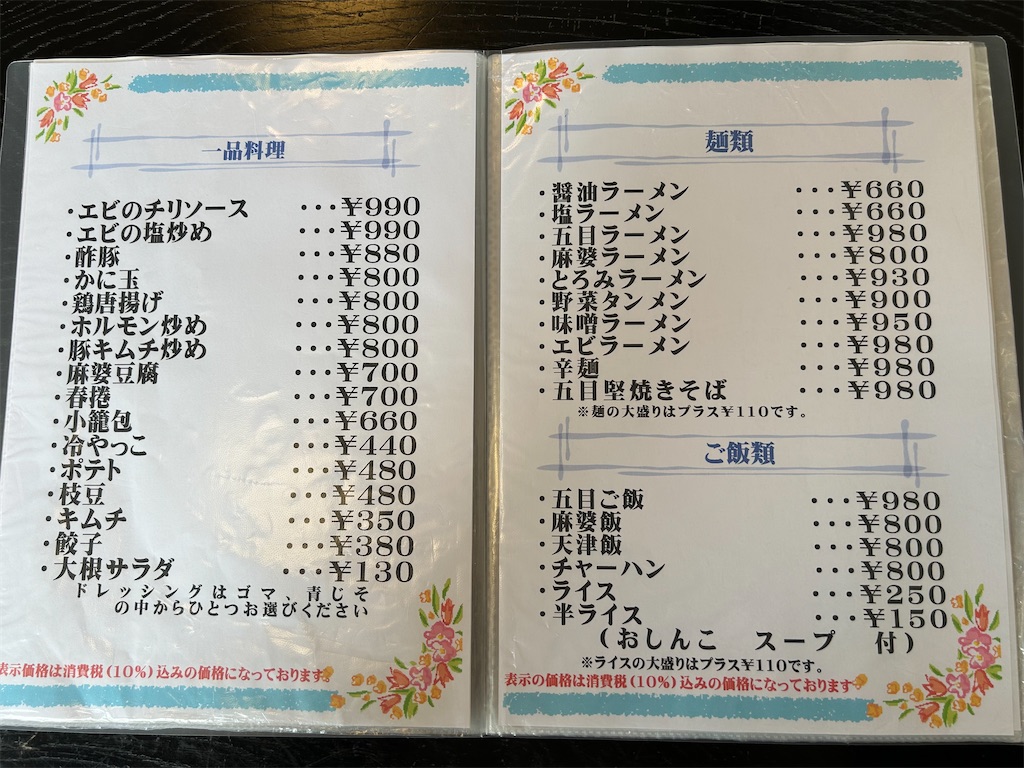 一品料理
・エビのチリソース ・・・¥990
・エビの塩炒め ・・・¥990
・酢豚 ・・・¥880
・かに玉 ・・・¥800
・鶏唐揚げ ・・・¥800
・ホルモン炒め ・・・¥800
・豚キムチ炒め ・・・¥800
・麻婆豆腐 ・・・¥700
・春捲 ・・・¥700
・小籠包 ・・・¥660
・冷やっこ ・・・¥440
・ポテト ・・・¥480
・枝豆 ・・・¥480
・キムチ ・・・¥350
・餃子 ・・・¥380
・大根サラダ ・・・¥130
ドレッシングはゴマ、青じそ
の中からひとつお選びください
表示価格は消費税(10%)込みの価格になっております
麺類
・醤油ラーメン ・・・¥660
・塩ラーメン ・・・¥660
・五目ラーメン ・・・¥980
・麻婆ラーメン ・・・¥800
・とろみラーメン ・・・¥930
・野菜タンメン ・・・¥900
・味噌ラーメン ・・・¥950
・エビラーメン ・・・¥980
・辛麺 ・・・¥980
・五目堅焼きそば ・・・¥980
※麺の大盛りはプラス¥110です。
ご飯類
・五目ご飯 ・・・¥980
・麻婆飯 ・・・¥800
・天津飯 ・・・¥800
・チャーハン ・・・¥800
・ライス ・・・¥250
・半ライス ・・・¥150
(おしんこ スープ 付)
※ライスの大盛りはプラス¥110です。
表示の価格は消費税(10%)込みの価格になっております